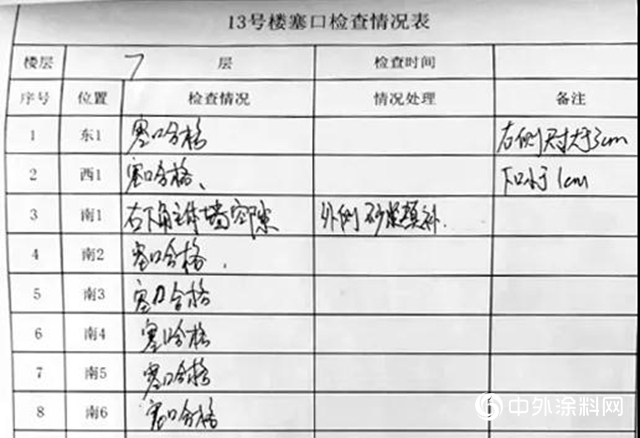 13号楼塞口检查情况表
楼层 7 层 检查时间
序号 位置 检查情况 情况处理 备注
1 东1 塞口合格 右侧尺寸大于3cm
2 西1 塞口合格、 下口小于1cm
3 南1 右下角主体墙空隙 外侧砂浆填补.
4 南2 塞口合格.
5 南3 塞口合格
6 南4 塞口合格
7 南5 塞口合格
8 南6 塞口合格
中外涂料网